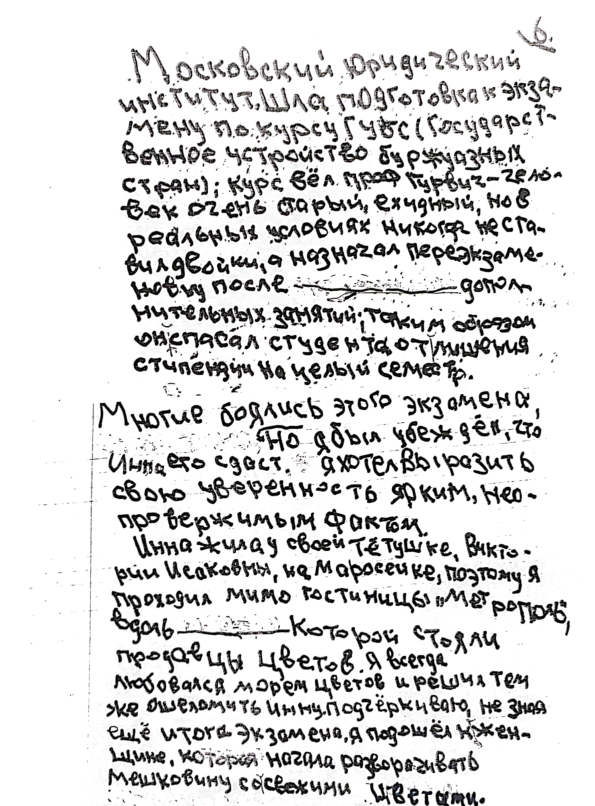 6.
Московский юридический
институт. Шла подготовка к экза-
мену по курсу ГУБС (Государст-
венное устройство буржуазных
стран); курс вёл проф Гурвич – чело-
век очень старый, ехидный, но в
реальных условиях никогда не ста-
вил двойки, а назначал переэкзаме-
новку после дополн
нительных занятий; таким образом
он спасал студента от лишения
стипендии на целый семестр.
Многие боялись этого экзамена,
но я был убеждён, что
Инна его сдаст. Я хотел выразить
свою уверенность ярким, нео-
провержимым фактом.
Инна жила у своей тётушки, Викто-
рии Исаковны, на Маросейке, поэтому я
проходил мимо гостиницы „Метрополь",
вдоль которой стояли
продавцы цветов. Я всегда
любовался морем цветов и решил тем
же ошеломить Инну. Подчёркиваю, не зная
ещё итога экзамена, я подошёл к жен-
щине, которая начала разворачивать
мешковину со свежими цветами.